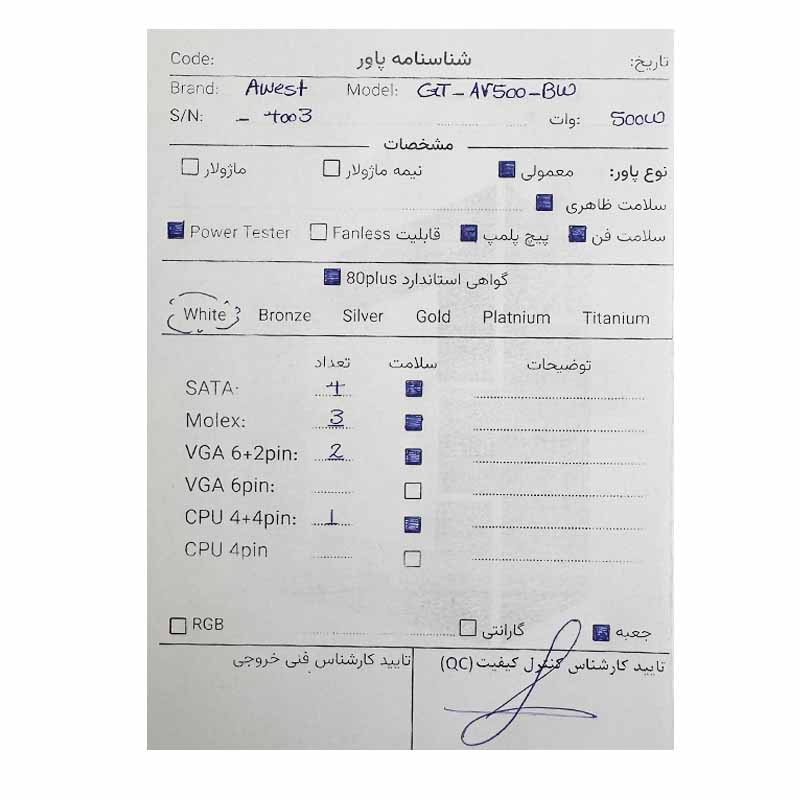 Code: شناسنامه پاور تاریخ:
Brand: Awest Model: GT-AV500-BW
S/N: - 4003 وات: 500W
مشخصات
نوع پاور: معمولی نیمه ماژولار ماژولار
سلامت ظاهری
سلامت فن پیچ پلمپ قابلیت Fanless Power Tester
گواهی استاندارد 80plus
White Bronze Silver Gold Platnium Titanium
تعداد سلامت توضیحات
SATA: 4
Molex: 3
VGA 6+2pin: 2
VGA 6pin:
CPU 4+4pin: 1
CPU 4pin
جعبه گارانتی RGB
تایید کارشناس کنترل کیفیت (QC) تایید کارشناس فنی خروجی